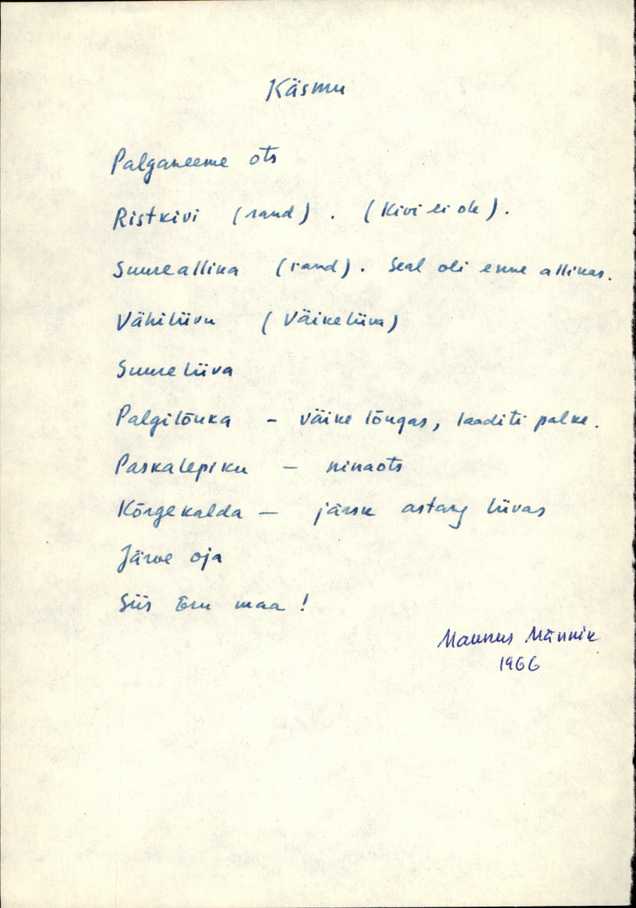 Käsmu
Palganeeme ots
Ristkivi (rand). (Kivi ei ole).
Suureallika (rand). Seal oli enne allikas.
Vähiliiva (Väikeliiva)
Suureliiva
Palgilõuka - väike lõugas, laaditi palke.
Paskalepiku - ninaots
Kõrgekalda - järsk astang liivas
Järve oja
Siis Eru maa!
Mannus Männik
1966